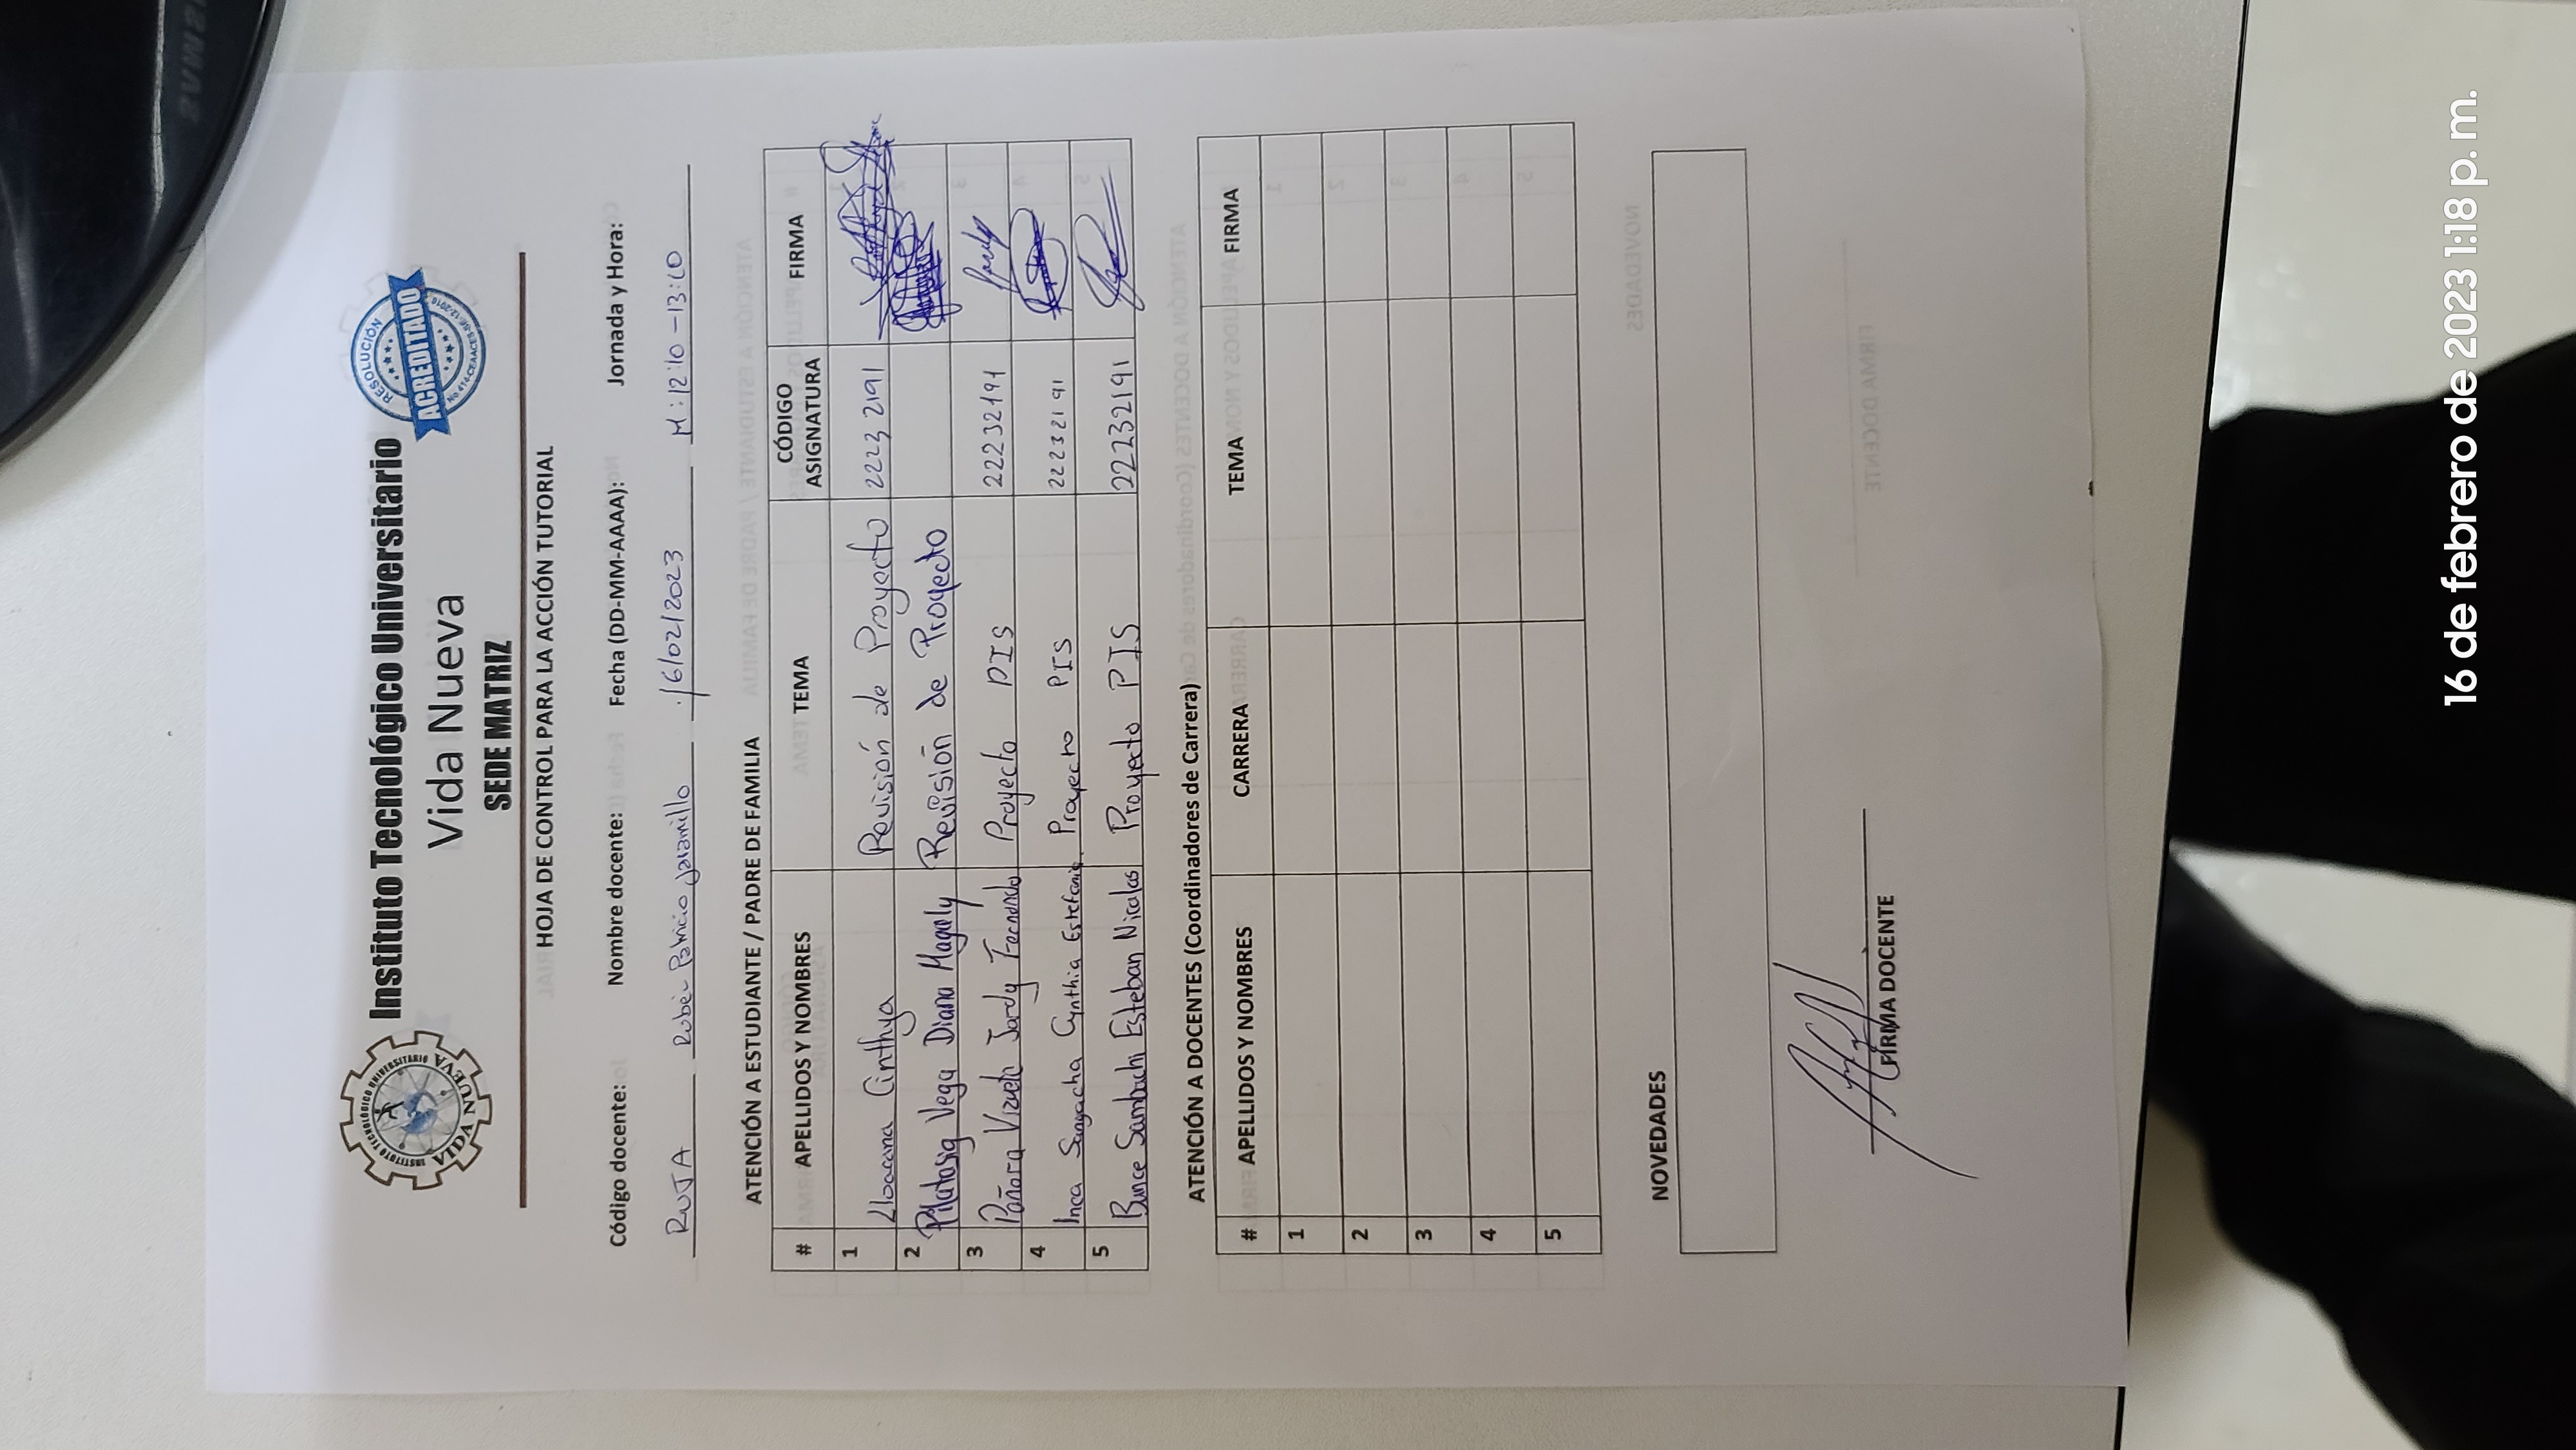 Instituto Tecnológico Universitario
Vida Nueva
SEDE MATRIZ
INSTITUTO TECNOLÓGICO UNIVERSITARIO
VIDA NUEVA
RESOLUCIÓN
ACREDITADO
HOJA DE CONTROL PARA LA ACCIÓN TUTORIAL
Código docente: Nombre docente: Fecha (DD-MM-AAAA): Jornada y Hora:
RUJA Rubén Patricio Jaramillo 16/02/2023 M:12:10-13:10
ATENCIÓN A ESTUDIANTE / PADRE DE FAMILIA
# APELLIDOS Y NOMBRES TEMA CÓDIGO ASIGNATURA FIRMA
1 Lloacana Cinthya Revisión de Proyecto 22232191
2 Pilatasig Vega Diana Magaly Revisión de Proyecto
3 Jardy Fernando Proyecto PIS 22232191
4 Inca Sangacha Cynthia Estefania Proyecto PIS 22232191
5 Bunce Sambachi Esteban Nicolas Proyecto PIS 22232191
ATENCIÓN A DOCENTES (Coordinadores de Carrera)
# APELLIDOS Y NOMBRES CARRERA TEMA FIRMA
1
2
3
4
5
NOVEDADES
FIRMA DOCENTE
16 de febrero de 2023 1:18 p. m.